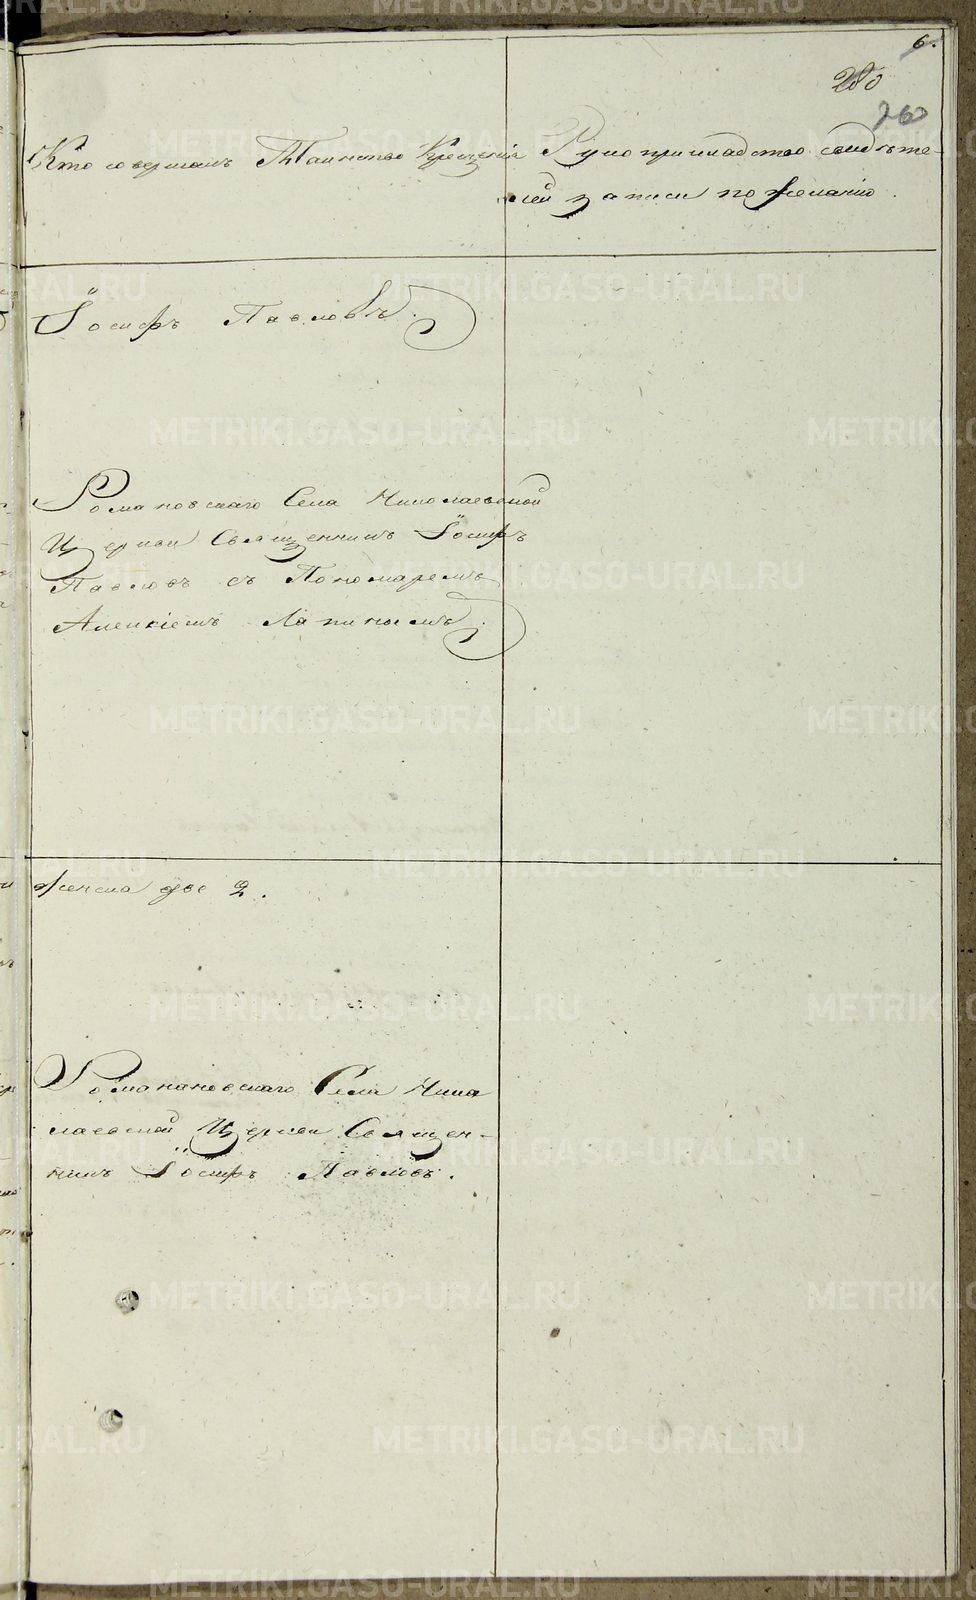 6.
280
260
Кто совершалъ Таинство Крещенія
Рукоприкладство свидѣте-
лей записи по желанію.
Іосифъ Павловъ.
Романовскаго Села Николаевской
Церкви Священникъ Іосифъ
Павловъ съ Пономаремъ
Алексіемъ Лапинымъ.
женска две 2.
Романановскаго Села Нико
лаевской Церкви Священ-
никъ Іосифъ Павловъ.
METRIKI.GASO-URAL.RU